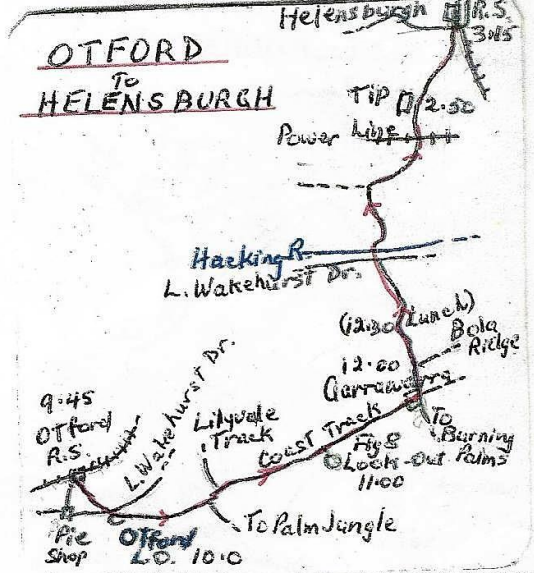 OTFORD
To
HELENSBURGH
Helensburgh R.S.
3.45
Tip 2.50
Power Line
Hacking R.
L. Wakehurst Dr.
(12.30 Lunch)
Bola
Ridge
12.00
Garrawarra
To
Burning
Palms
Coast Track
Fig 8
Look-Out
11.00
Lilyvale
Track
To Palm Jungle
L. Wakehurst Dr.
9.45
OTford
R.S.
Pie
Shop
OTford
L.O. 10.0